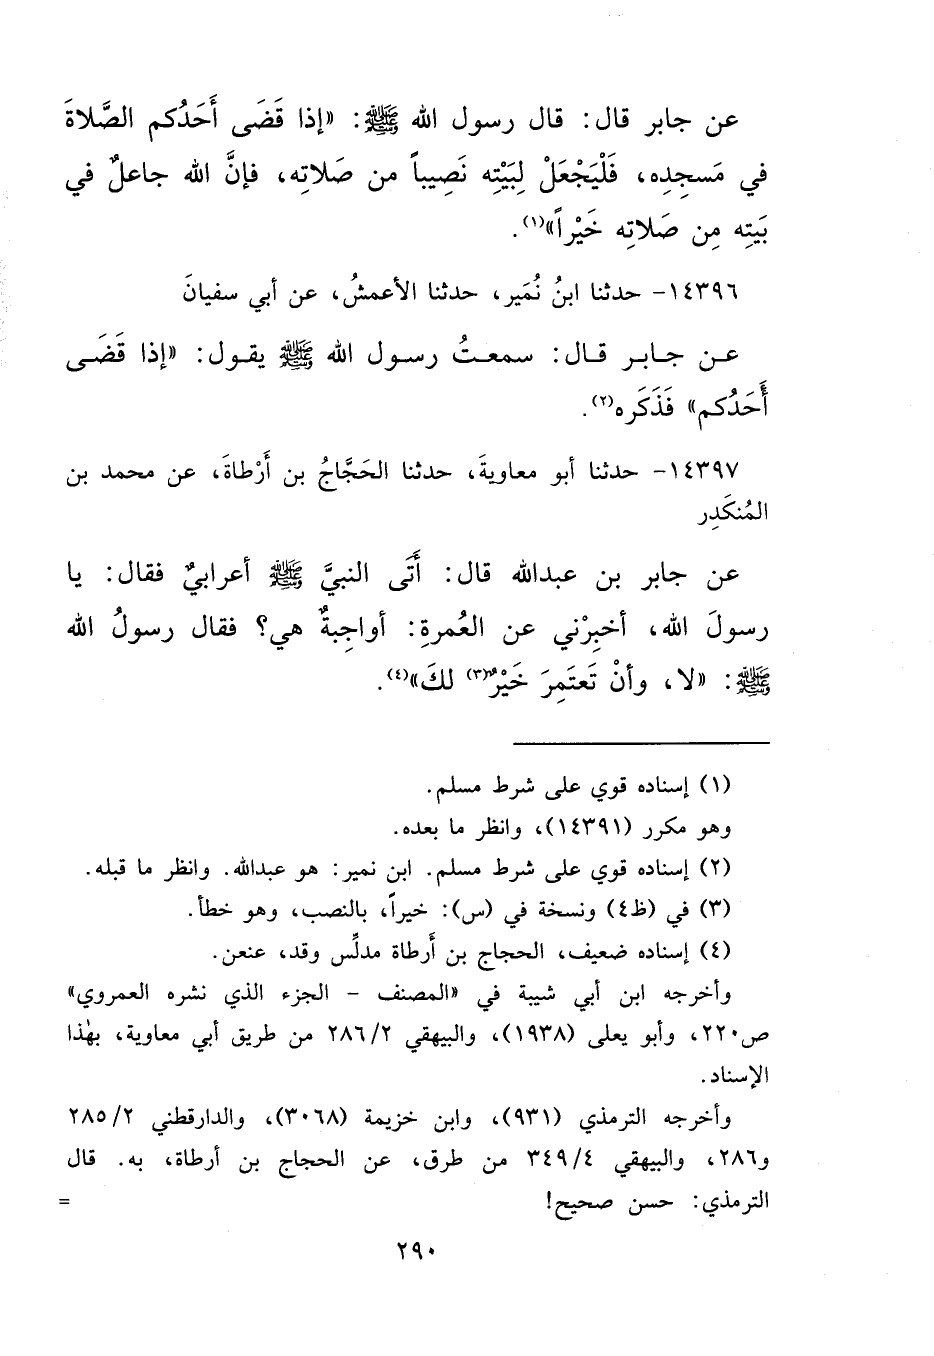 عن جابر قال: قال رسول الله ﷺ: «إذا قَضَى أَحَدُكم الصَّلاةَ
في مَسجِدِه، فَلْيَجْعَلْ لِبَيْتِه نَصِيباً من صَلاتِه، فإنَّ الله جاعلٌ في
بَيتِه مِن صَلاتِه خَيْراً»(١).
١٤٣٩٦- حدثنا ابنُ نُمَير، حدثنا الأعمشُ، عن أبي سفيانَ
عن جابر قال: سمعتُ رسول الله ﷺ يقول: «إذا قَضَى
أَحَدُكم» فَذَكَره(٢).
١٤٣٩٧- حدثنا أبو معاويةَ، حدثنا الحَجَّاجُ بن أَرْطاةَ، عن محمد بن
المُنكَدِر
عن جابر بن عبدالله قال: أَتَى النبيَّ ﷺ أعرابيٌ فقال: يا
رسولَ الله، أخبِرْني عن العُمرةِ: أواجِبةٌ هي؟ فقال رسولُ الله
ﷺ: «لا، وأنْ تَعتَمِرَ خَيْرٌ(٣) لكَ»(٤).
(١) إسناده قوي على شرط مسلم.
وهو مكرر (١٤٣٩١)، وانظر ما بعده.
(٢) إسناده قوي على شرط مسلم. ابن نمير: هو عبدالله. وانظر ما قبله.
(٣) في (ظ٤) ونسخة في (س): خيراً، بالنصب، وهو خطأ.
(٤) إسناده ضعيف، الحجاج بن أَرطاة مدلِّس وقد، عنعن.
وأخرجه ابن أبي شيبة في «المصنف - الجزء الذي نشره العمروي»
ص٢٢٠، وأبو يعلى (١٩٣٨)، والبيهقي ٢/٢٨٦ من طريق أبي معاوية، بهٰذا
الإسناد.
وأخرجه الترمذي (٩٣١)، وابن خزيمة (٣٠٦٨)، والدارقطني ٢/٢٨٥
و٢٨٦، والبيهقي ٤/٣٤٩ من طرق، عن الحجاج بن أرطاة، به. قال
الترمذي: حسن صحيح! =
٢٩٠